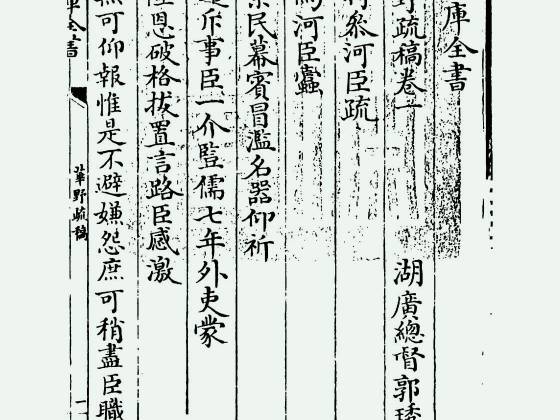 庫全書
野疏稿卷一 湖廣總督郭琇
河臣疏
河臣蠹
民幕賓冒濫名器仰祈
斥事臣一介豎儒七年外吏蒙
恩破格拔置言路臣感激
可仰報惟是不避嫌怨庶可稍盡臣職
華野疏稿
全書